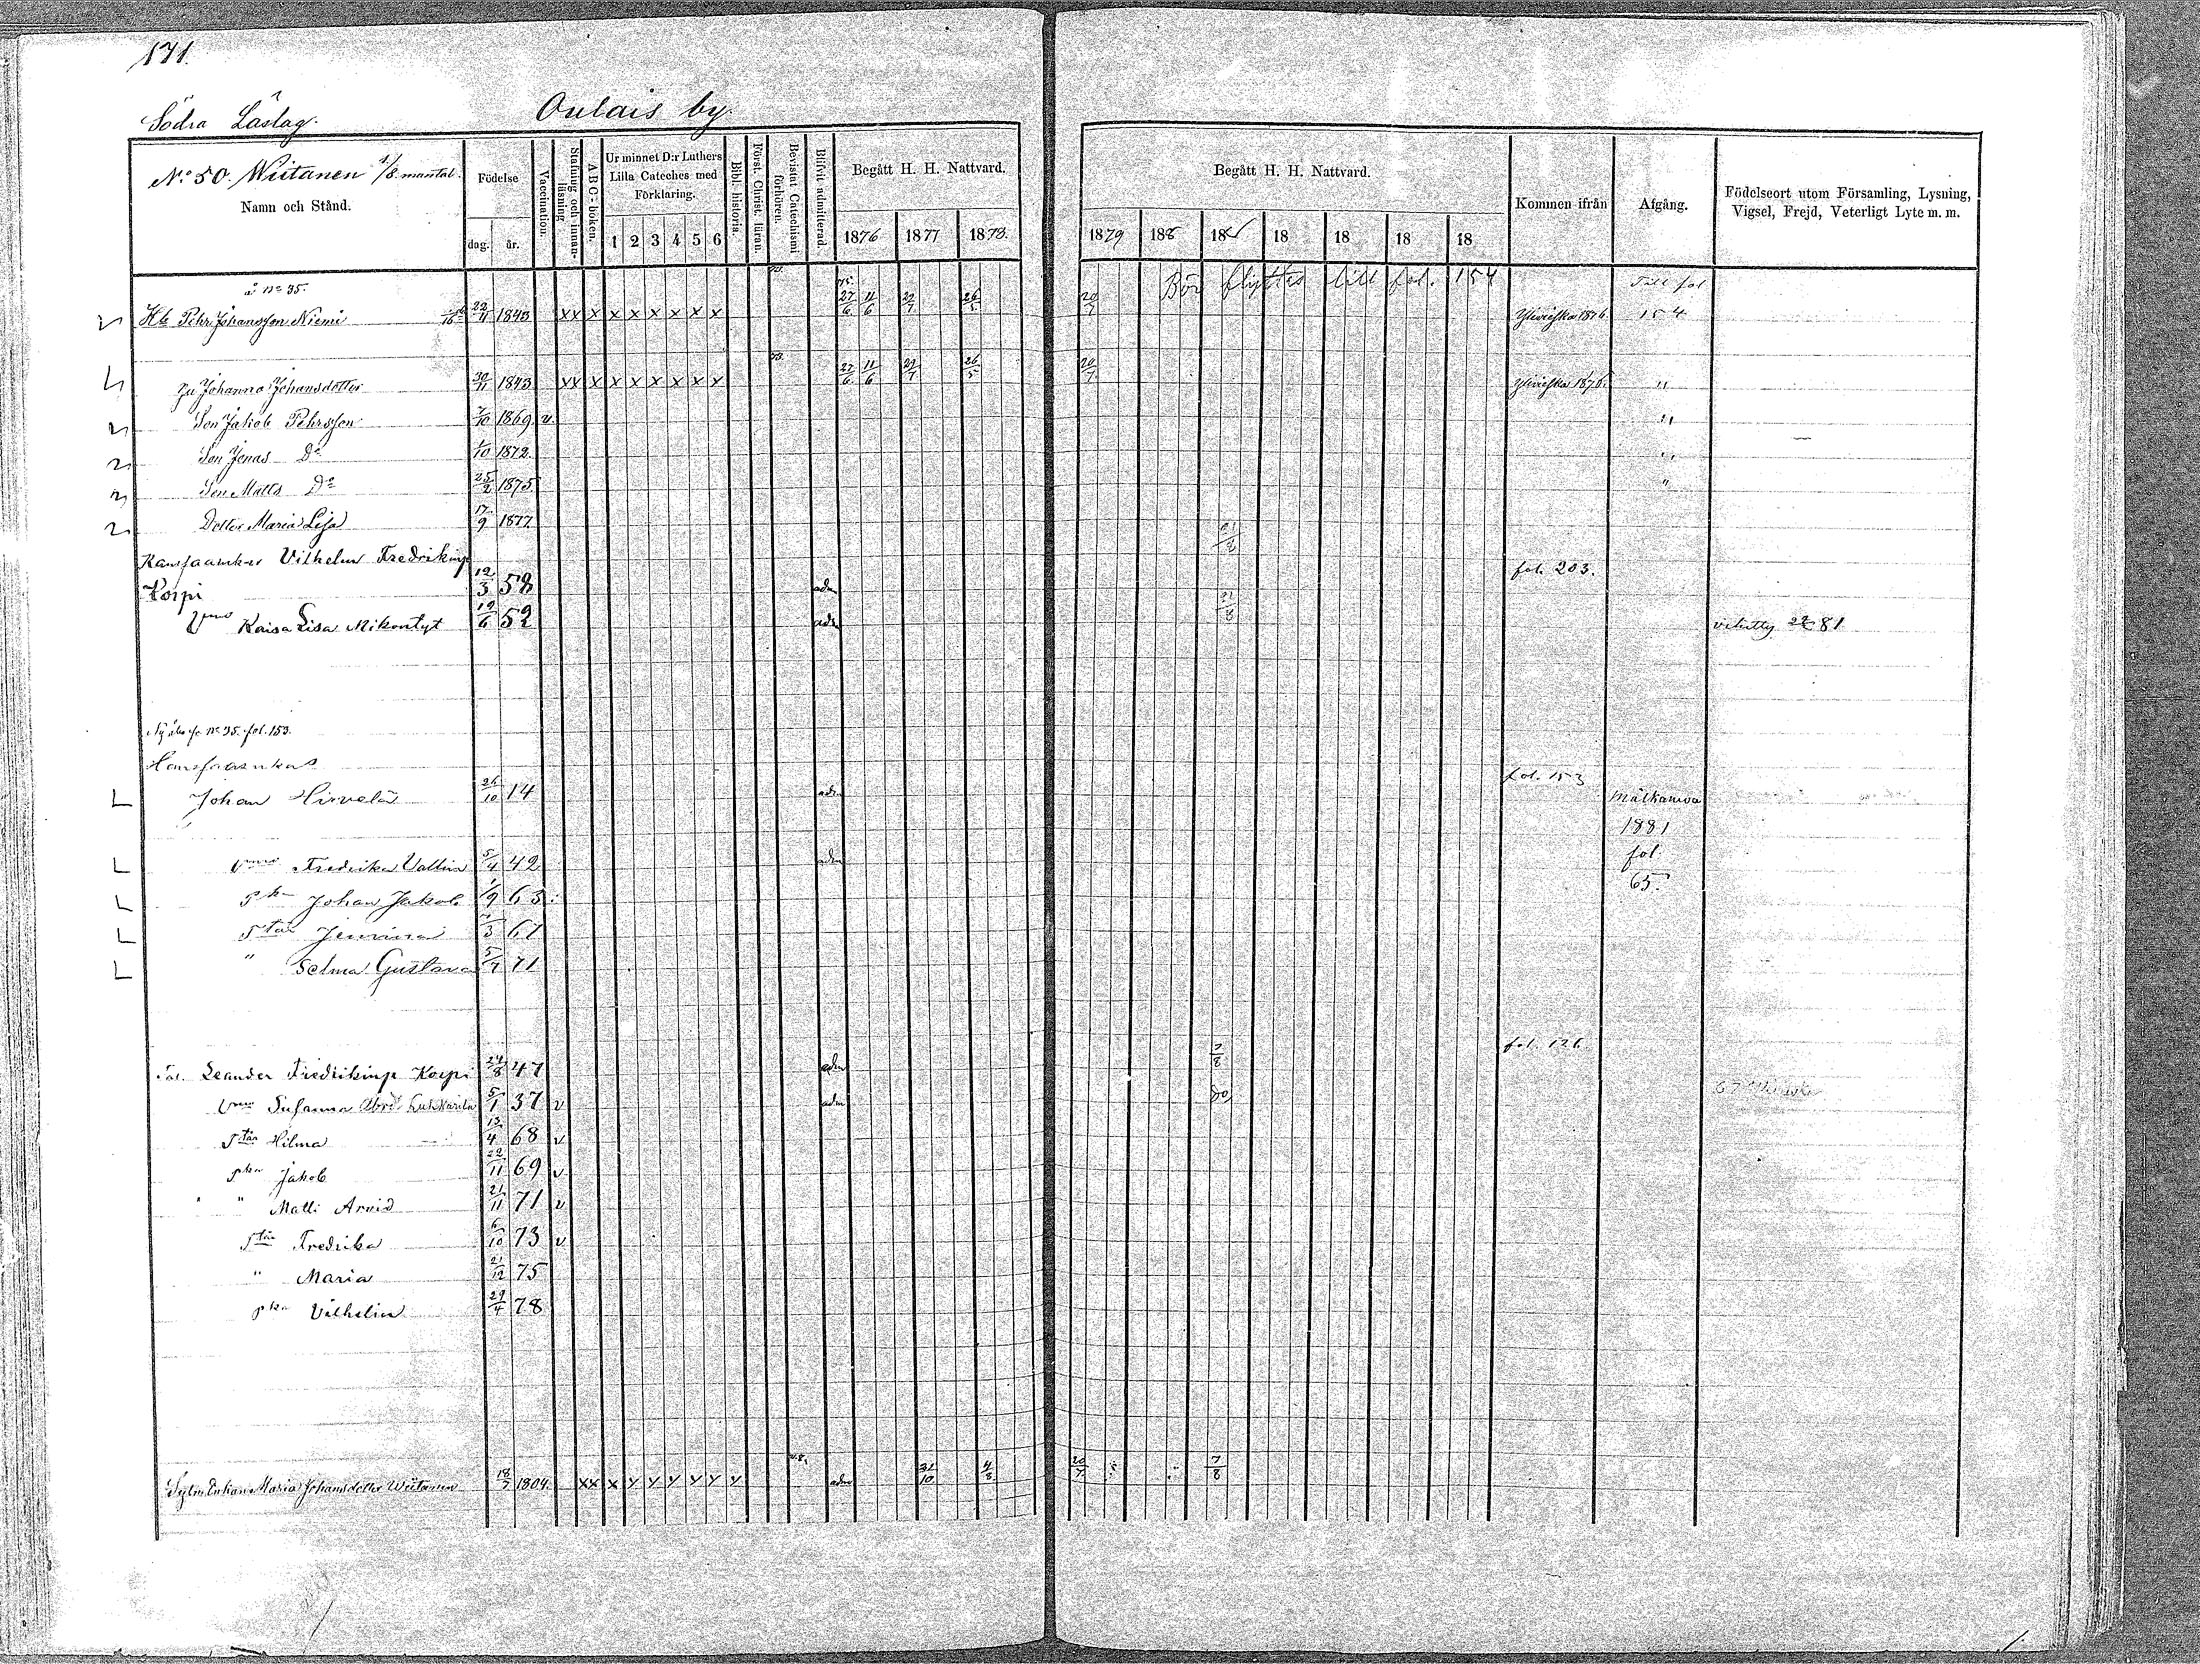 171.
Södra Läslag.
Oulais by.
No 50. Wiitanen 1/8 mantal.
Namn och Stånd.
Födelse
dag. år.
Vaccination.
Stafning och innanläsning
ABC-boken.
Ur minnet D:r Luthers Lilla Cateches med Förklaring.
1 2 3 4 5 6
Bibl. historia.
Först. Christ. läran.
Bevistat Catechismi förhören.
Blifvit admitterad.
Begått H. H. Nattvard.
1876 1877 1878.
Begått H. H. Nattvard.
1879 188 18 18 18 18 18
Kommen ifrån
Afgång.
Födelseort utom Församling, Lysning, Vigsel, Frejd, Veterligt Lyte m. m.
å No 35.
Bör flyttes till fol. 154
Till fol
Hb Pehr Johansson Niemi 22/11 1843 x x x x x x x x x 27/6 11/6 29/7 26/5 20/7 Ylivieska 1876. 154
Johanna Johansdotter 30/11 1843 x x x x x x x x x 27/6 11/6 29/7 26/5 20/7 Ylivieska 1876. "
Son Jakob Pehrsson 7/10 1869 v. "
Son Jonas Do 1/10 1872. "
Son Matts Do 25/2 1875 "
Dotter Maria Lisa 17/9 1877
Kanssaamies Vilhelm Fredrikinp
Korpi 12/3 58 adm fol. 203.
Vmo Kaisa Lisa Mikontyt 19/6 52 adm vihitty 81
No 35. fol. 153.
Johan Hirvelä 26/10 14 adm fol. 153
Matkanwa
1881
Vmo Fredrika Vallin 5/4 42 adm fol.
Pka Johan Jakob 1/9 63 65.
Ttär 7/3 67
" Selma Gustava 5/7 71
Leander Fredrikinp Korpi 24/8 47 adm 7/8 fol. 126
Vmo Susanna 5/1 37 v adm do
Ttär Hilma 13/4 68 v
Pka Jakob 22/11 69 v
" Matti Arvid 21/11 71 v
Ttär Fredrika 6/10 73 v
" Maria 21/12 75
Pka Vilhelm 29/4 78
Enkan Maria Johansdotter Wiitanen 18/7 1804. x x x y y y y y y adm 31/10 4/8 20/7 7/8